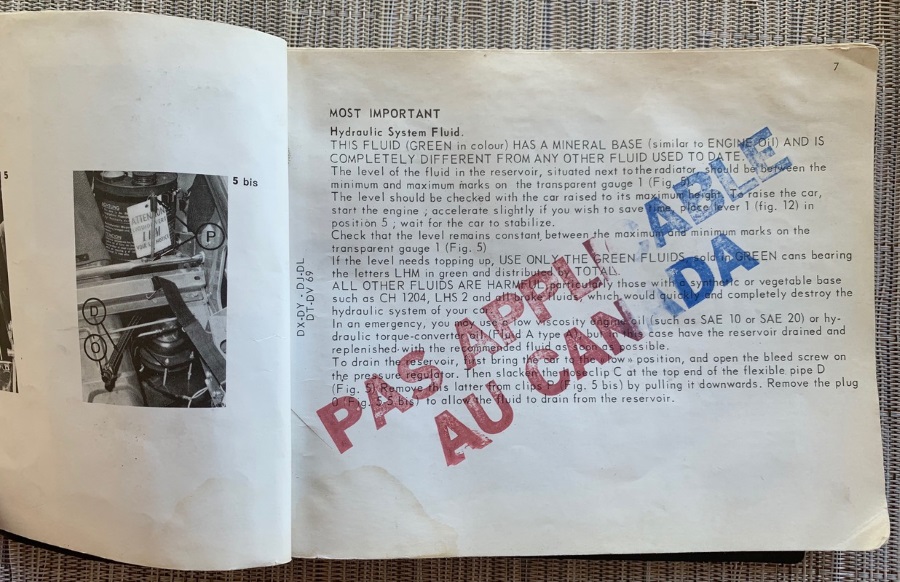 5
5 bis
ATTENTION
LHM
P
D
O
DX-DY - DJ-DL
DT-DV 69
7
MOST IMPORTANT
Hydraulic System Fluid.
THIS FLUID (GREEN in colour) HAS A MINERAL BASE (similar to ENGINE Oil) AND IS
COMPLETELY DIFFERENT FROM ANY OTHER FLUID USED TO DATE.
The level of the fluid in the reservoir, situated next to the radiator, should be between the
minimum and maximum marks on the transparent gauge 1 (Fig. 5).
The level should be checked with the car raised to its maximum height. To raise the car,
start the engine ; accelerate slightly if you wish to save time, place lever 1 (fig. 12) in
position 5 ; wait for the car to stabilize.
Check that the level remains constant between the maximum and minimum marks on the
transparent gauge 1 (Fig. 5)
If the level needs topping up, USE ONLY THE GREEN FLUIDS, sold in GREEN cans bearing
the letters LHM in green and distributed by TOTAL.
ALL OTHER FLUIDS ARE HARMFUL particularly those with a synthetic or vegetable base
such as CH 1204, LHS 2 and all brake fluids, which would quickly and completely destroy the
hydraulic system of your car.
In an emergency, you may use a low viscosity engine oil (such as SAE 10 or SAE 20) or hy-
draulic torque-converter oil (Fluid A type A) but in this case have the reservoir drained and
replenished with the recommended fluid as soon as possible.
To drain the reservoir, first bring the car to the «low» position, and open the bleed screw on
the pressure regulator. Then slacken the clip C at the top end of the flexible pipe D
(Fig. 5) Remove this latter from clip P (Fig. 5 bis) by pulling it downwards. Remove the plug
O (Fig. 5-5 bis) to allow the fluid to drain from the reservoir.
PAS APPLICABLE
AU CANADA